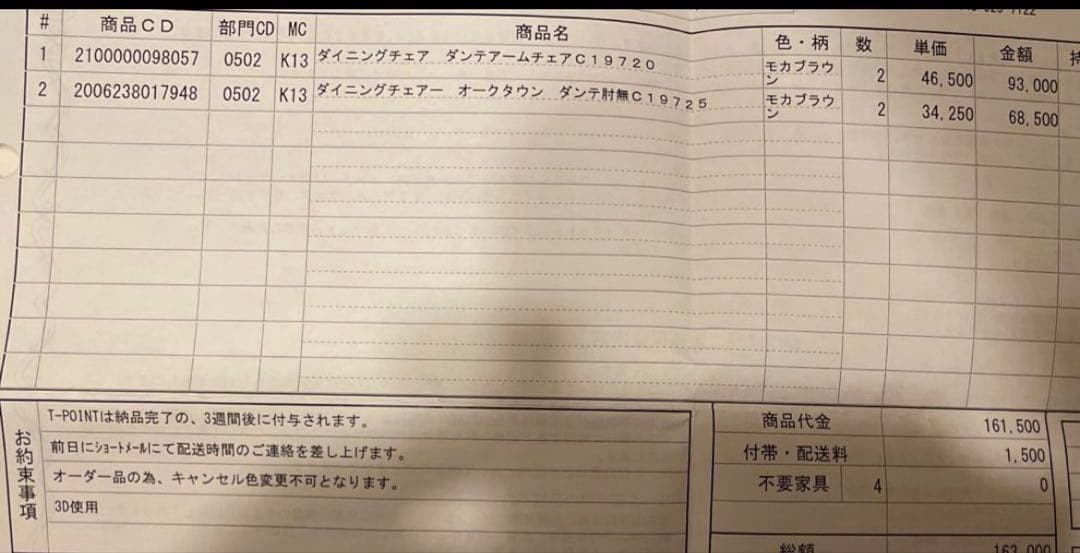 # 商品CD 部門CD MC 商品名 色・柄 数 単価 金額
1 2100000098057 0502 K13 ダイニングチェア ダンテアームチェアC19720 モカブラウン 2 46,500 93,000
2 2006238017948 0502 K13 ダイニングチェアー オークタウン ダンテ肘無C19725 モカブラウン 2 34,250 68,500
お約束事項
T-POINTは納品完了の、3週間後に付与されます。
前日にショートメールにて配送時間のご連絡を差し上げます。
オーダー品の為、キャンセル色変更不可となります。
3D使用
商品代金 161,500
付帯・配送料 1,500
不要家具 4 0
総額 163,000